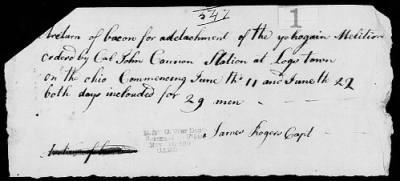 347
1
A return of bacon for a detachment of the yohogain Melition
orderd by Col John Cannon Station at Logs town
on the ohio Commencing June th 11 and June th 22
both days inclouded for 29 men
James Rogers Capt